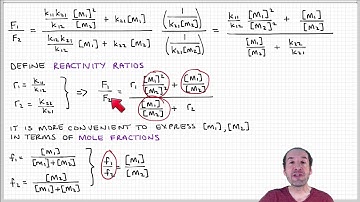 F₁/F₂ = (k₁₁k₂₁/k₁₂ [M₁]²/[M₂] + k₂₁[M₁]) / (k₁₂k₂₁/k₁₂ [M₁] + k₂₂[M₂]) (1/(k₂₁[M₂])) / (1/(k₂₁[M₂])) = (k₁₁/k₁₂ [M₁]²/[M₂]² + [M₁]/[M₂]) / ([M₁]/[M₂] + k₂₂/k₂₁)
DEFINE REACTIVITY RATIOS
r₁ = k₁₁/k₁₂
r₂ = k₂₂/k₂₁ } => F₁/F₂ = (r₁ [M₁]²/[M₂]² + [M₁]/[M₂]) / ([M₁]/[M₂] + r₂)
IT IS MORE CONVENIENT TO EXPRESS [M₁], [M₂]
IN TERMS OF MOLE FRACTIONS
f₁ = [M₁]/([M₁]+[M₂])
f₂ = [M₂]/([M₁]+[M₂]) } f₁/f₂ = [M₁]/[M₂]